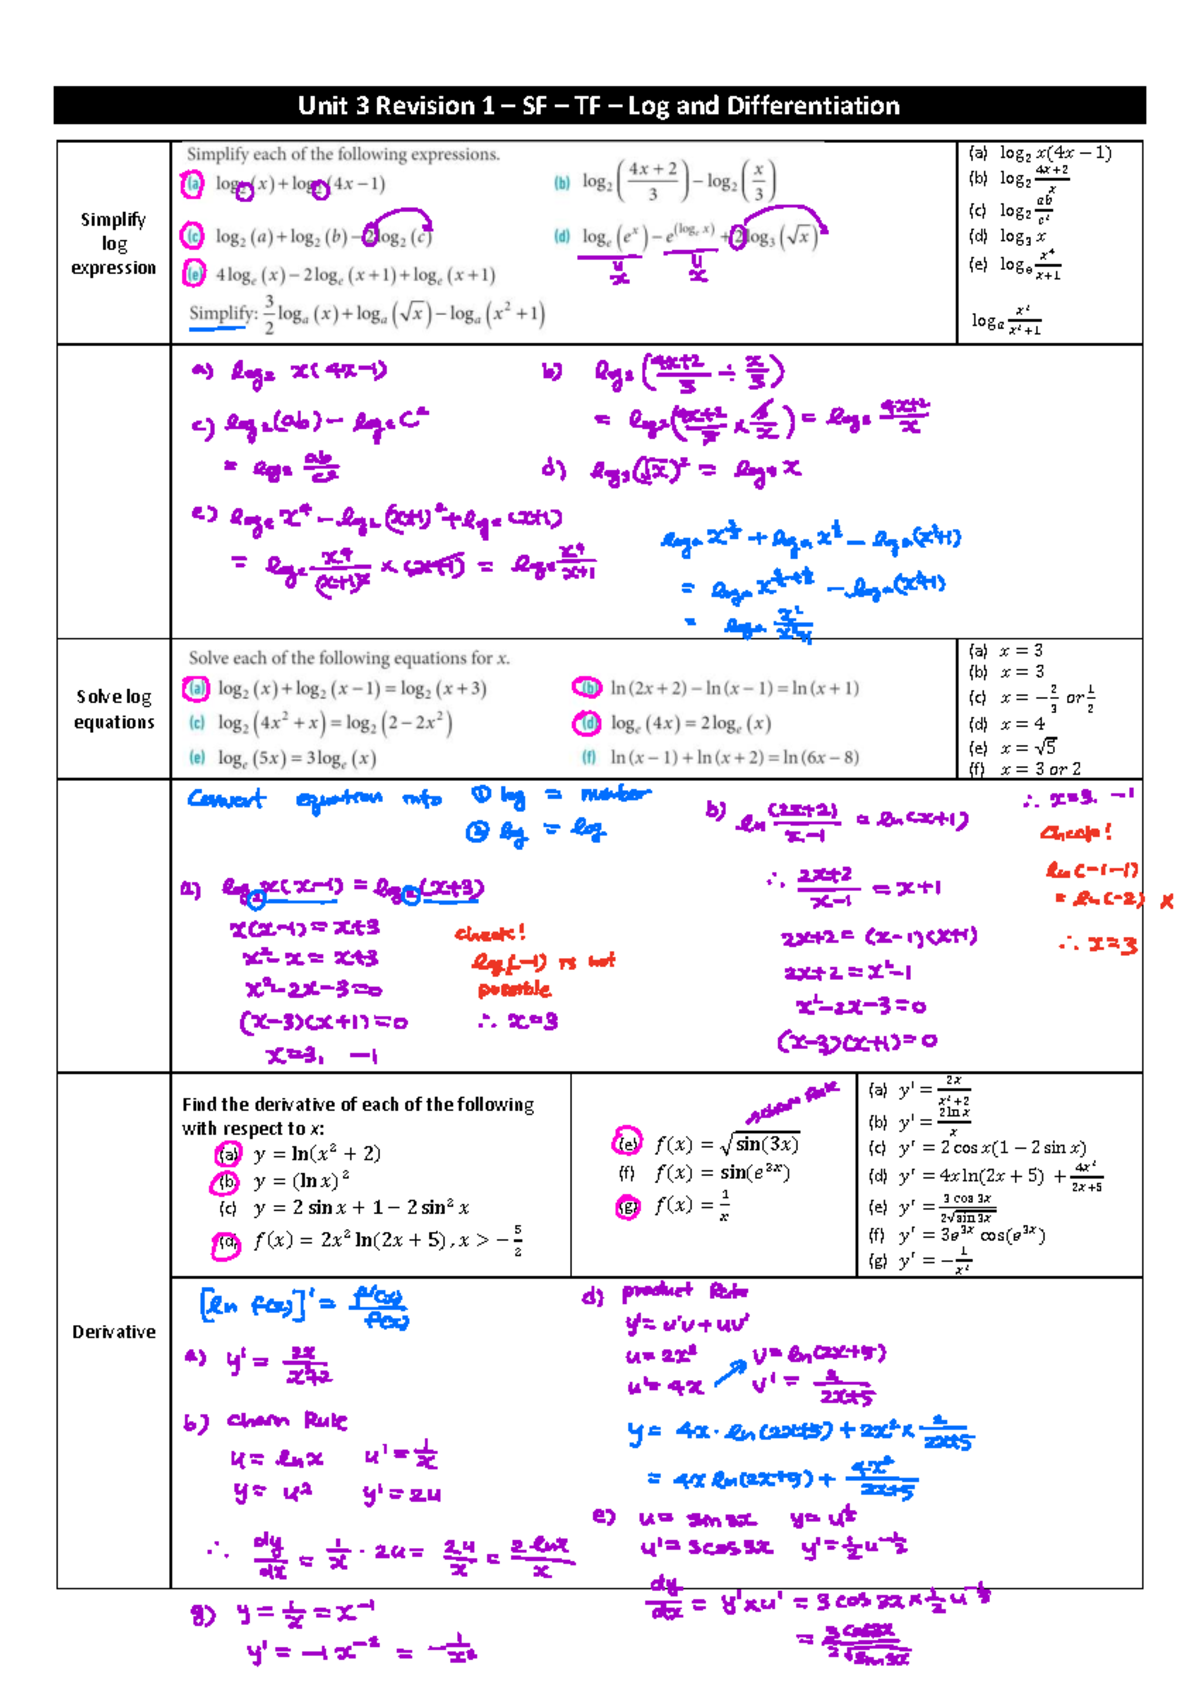 Unit 3 Revision 1 – SF – TF – Log and Differentiation
Simplify log expression
Simplify each of the following expressions.
(a) log₂(x) + log₂(4x − 1)
(b) log₂((4x + 2)/3) − log₂(x/3)
(c) log₂(a) + log₂(b) − 2log₂(c)
(d) logₑ(eˣ) − e^(logₑ x) + 2log₃(√x)
x x
(e) 4logₑ(x) − 2logₑ(x + 1) + logₑ(x + 1)
Simplify: 3/2 logₐ(x) + logₐ(√x) − logₐ(x² + 1)
(a) log₂ x(4x − 1)
(b) log₂ (4x+2)/x
(c) log₂ ab/c²
(d) log₃ x
(e) logₑ x⁴/(x+1)
logₐ x²/(x²+1)
a) log₂ x(4x−1)
b) log₂((4x+2)/3 ÷ x/3)
= log₂((4x+2)/3 × 3/x) = log₂ (4x+2)/x
c) log₂(ab) − log₂c²
= log₂ ab/c²
d) log₃(√x)² = log₃ x
e) logₑ x⁴ − logₑ(x+1)² + logₑ(x+1)
= logₑ x⁴/(x+1)² × (x+1) = logₑ x⁴/(x+1)
logₐ x^(3/2) + logₐ x^(1/2) − logₐ(x²+1)
= logₐ x^(3/2+1/2) − logₐ(x²+1)
= logₐ x²/(x²+1)
Solve log equations
Solve each of the following equations for x.
(a) log₂(x) + log₂(x − 1) = log₂(x + 3)
(b) ln(2x + 2) − ln(x − 1) = ln(x + 1)
(c) log₂(4x² + x) = log₂(2 − 2x²)
(d) logₑ(4x) = 2logₑ(x)
(e) logₑ(5x) = 3logₑ(x)
(f) ln(x − 1) + ln(x + 2) = ln(6x − 8)
(a) x = 3
(b) x = 3
(c) x = −2/3 or 1/2
(d) x = 4
(e) x = √5
(f) x = 3 or 2
Convert equation into ① log = number
② log = log
a) log₂x(x−1) = log₂(x+3)
x(x−1) = x+3
x²−x = x+3
x²−2x−3=0
(x−3)(x+1)=0
x=3, −1
check!
log(−1) is not
possible
∴ x=3
b) ln (2x+2)/(x−1) = ln(x+1)
∴ (2x+2)/(x−1) = x+1
2x+2 = (x−1)(x+1)
2x+2 = x²−1
x²−2x−3=0
(x−3)(x+1)=0
∴ x=3, −1
Check!
ln(−1−1)
= ln(−2) x
∴ x=3
Derivative
Find the derivative of each of the following
with respect to x:
(a) y = ln(x² + 2)
(b) y = (ln x)²
(c) y = 2 sin x + 1 − 2 sin² x
(d) f(x) = 2x² ln(2x + 5), x > −5/2
chain Rule
(e) f(x) = √sin(3x)
(f) f(x) = sin(e³ˣ)
(g) f(x) = 1/x
(a) y′ = 2x/(x²+2)
(b) y′ = 2 ln x/x
(c) y′ = 2 cos x(1 − 2 sin x)
(d) y′ = 4x ln(2x + 5) + 4x²/(2x+5)
(e) y′ = 3 cos 3x/(2√sin 3x)
(f) y′ = 3e³ˣ cos(e³ˣ)
(g) y′ = −1/x²
[ln f(x)]′ = f′(x)/f(x)
a) y′ = 2x/(x²+2)
b) chain Rule
u = lnx u′ = 1/x
y = u² y′ = 2u
∴ dy/dx = 1/x · 2u = 2u/x = 2 lnx/x
g) y = 1/x = x⁻¹
y′ = −1x⁻² = −1/x²
d) product Rule
y′ = u′v + uv′
u = 2x² v = ln(2x+5)
u′ = 4x v′ = 2/(2x+5)
y = 4x · ln(2x+5) + 2x² × 2/(2x+5)
= 4x ln(2x+5) + 4x²/(2x+5)
e) u = sin 3x y = u^(1/2)
u′ = 3cos3x y′ = 1/2 u^(−1/2)
dy/dx = y′ × u′ = 3 cos 3x × 1/2 u^(−1/2)
= 3 cos3x/(2√sin3x)